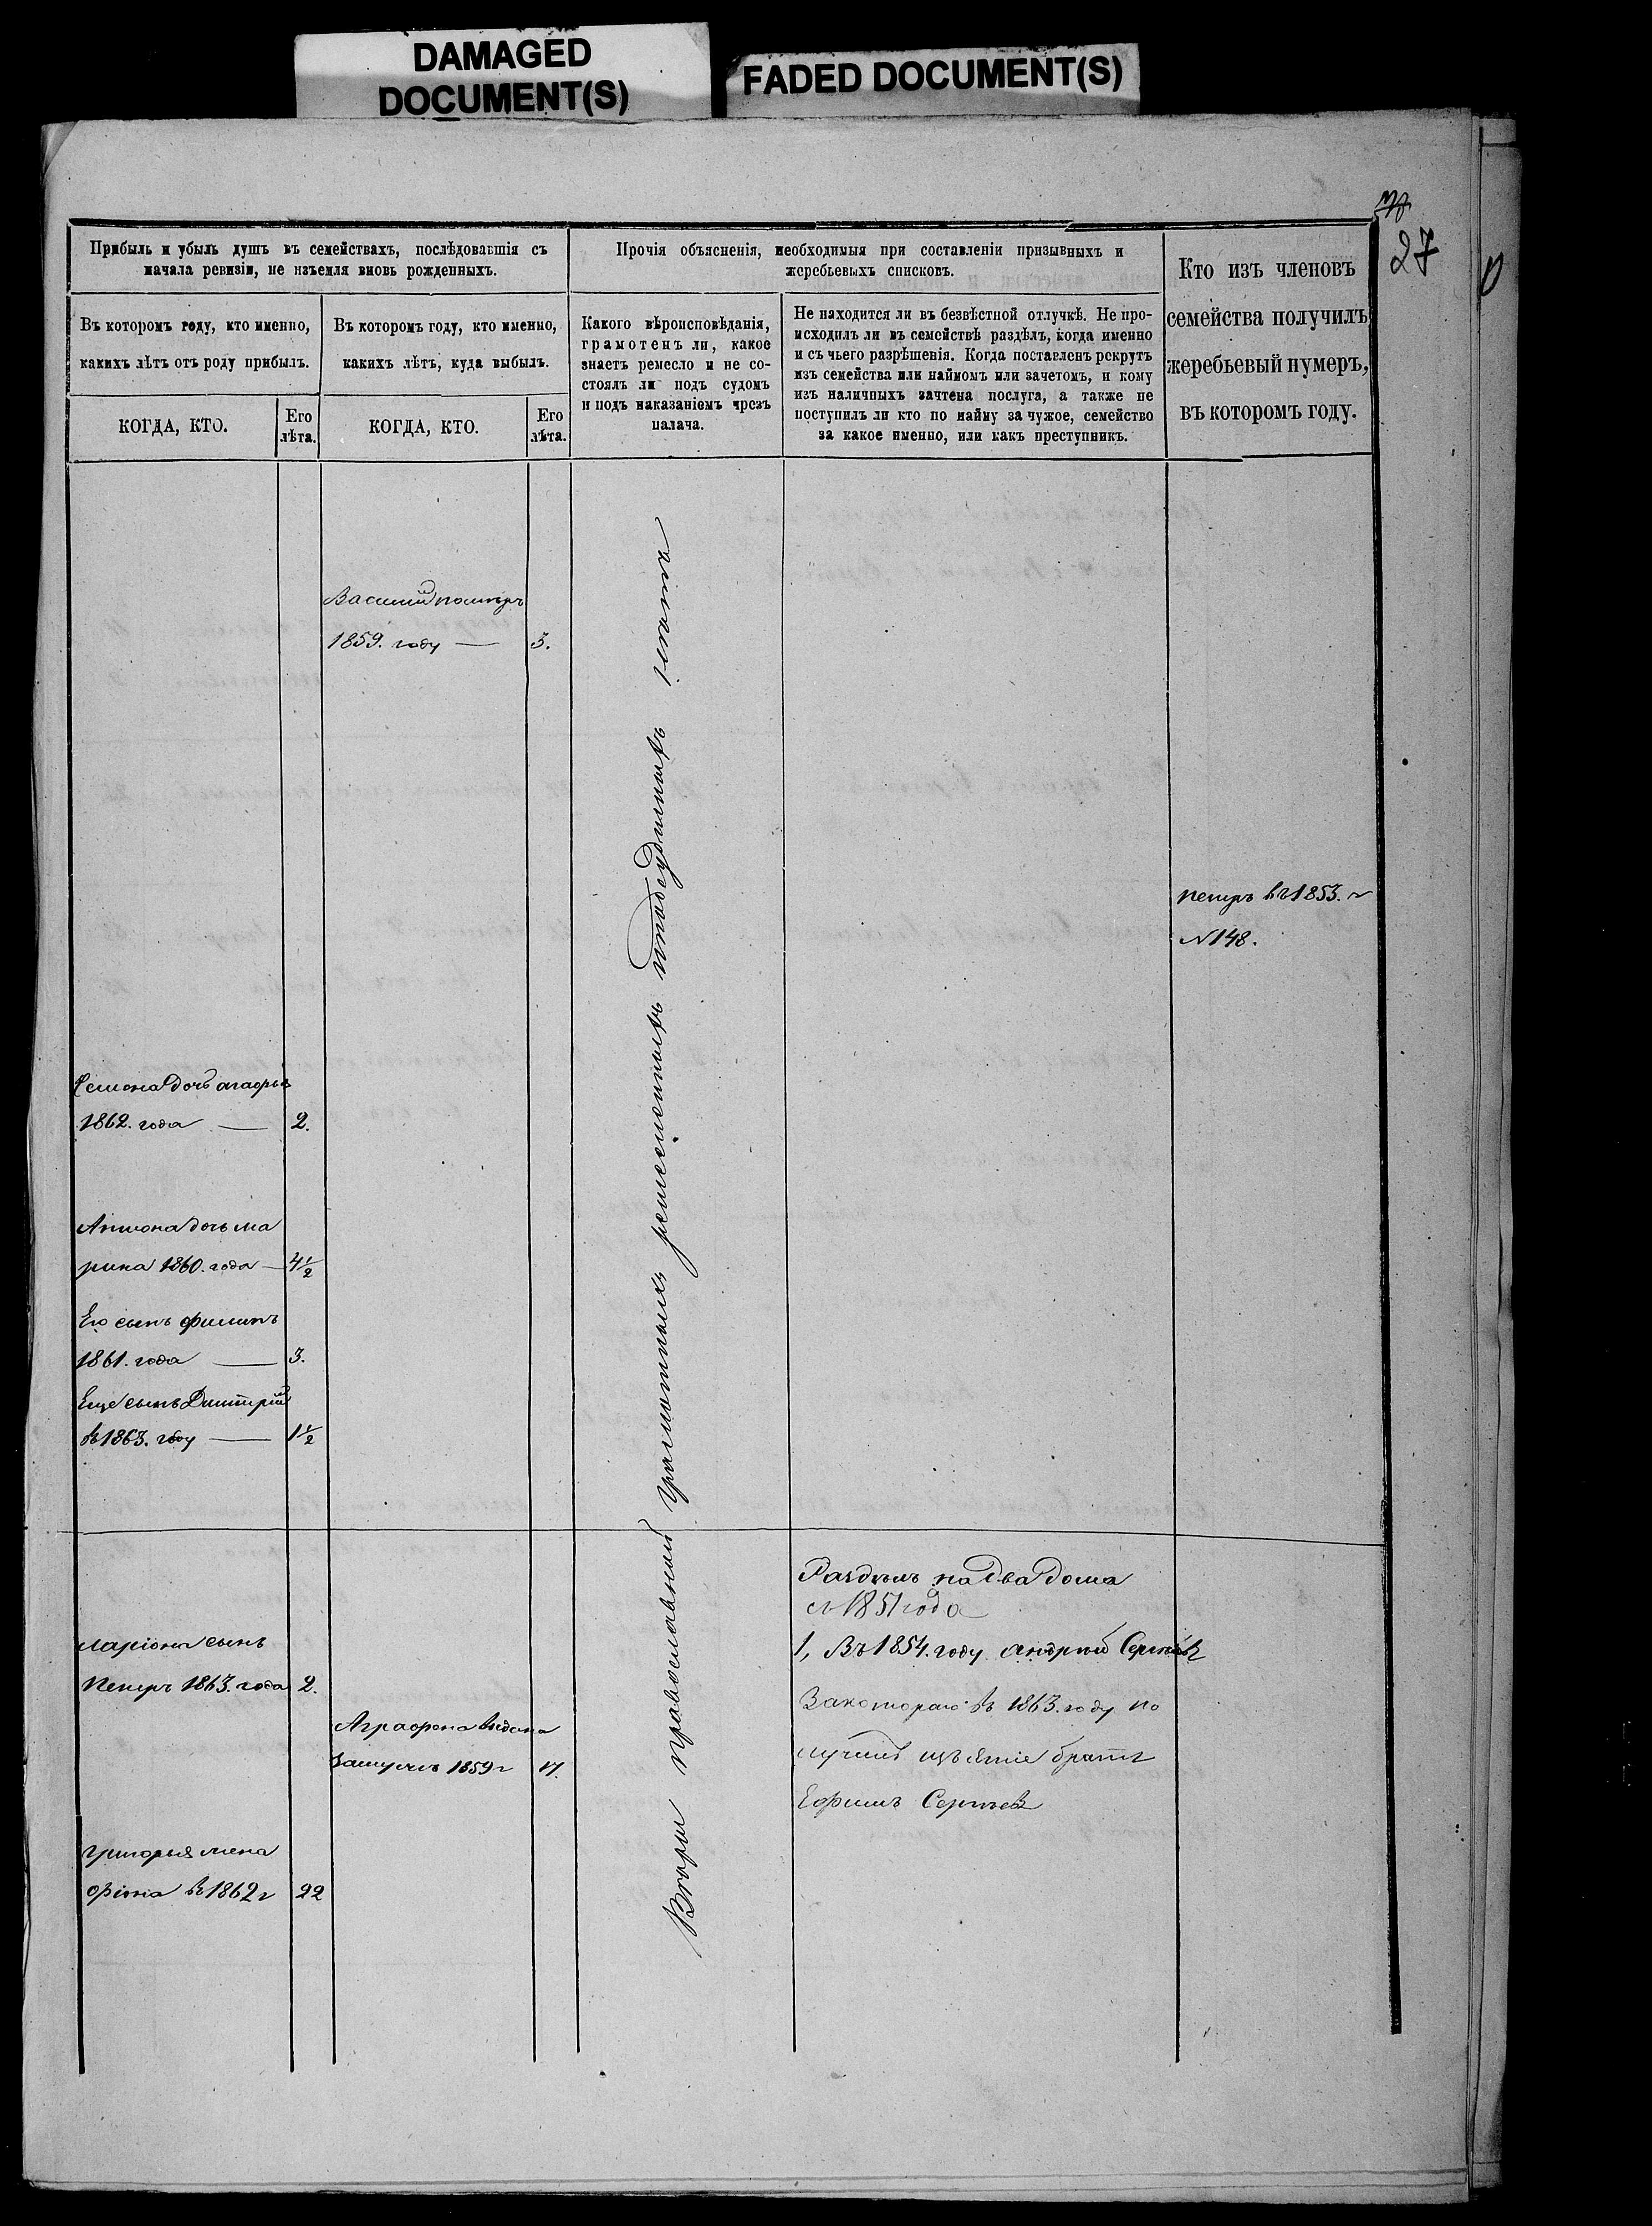 DAMAGED
DOCUMENT(S)
FADED DOCUMENT(S)
27
Прибыль и убыль душъ въ семействахъ, послѣдовавшія съ
начала ревизіи, не изъемля вновь рожденныхъ.
Въ которомъ году, кто именно,
какихъ лѣтъ отъ роду прибылъ.
КОГДА, КТО.
Его
лѣта.
Въ которомъ году, кто именно,
какихъ лѣтъ, куда выбылъ.
КОГДА, КТО.
Его
лѣта.
Прочія объясненія, необходимыя при составленіи призывныхъ и
жеребьевыхъ списковъ.
Какого вѣроисповѣданія,
грамотенъ ли, какое
знаетъ ремесло и не со-
стоялъ ли подъ судомъ
и подъ наказаніемъ чрезъ
палача.
Не находится ли въ безвѣстной отлучкѣ. Не про-
исходилъ ли въ семействѣ раздѣлъ, когда именно
и съ чьего разрѣшенія. Когда поставленъ рекрутъ
изъ семейства или наймомъ или зачетомъ, и кому
изъ наличныхъ зачтена послуга, а также не
поступилъ ли кто по найму за чужое, семейство
за какое именно, или какъ преступникъ.
Кто изъ членовъ
семейства получилъ
жеребьевый нумеръ,
въ которомъ году.
Василий померъ
1859. году — 3.
петръ въ 1853. г
N 148.
Семена дочь агафья
1862. года — 2.
дочь ма
рина 1860. года — 4½
Его сынъ филипъ
1861. года — 3.
Еще сынъ Дмитрій
въ 1863. году — 1½
Вѣры православной Грамотныхъ ремесленныхъ иподсудимыхъ нѣтъ
Раздѣлъ на Два Дома
съ 1851 года
ларіона сынъ
Петръ 1863. года 2.
1, Въ 1854. году андрей Сергѣевъ
Закотораго въ 1863. году по
лучилъ братъ
Ефимъ Сергѣевъ
Аграфена выдана
Замужъ 1859 г 17.
григорья жена
въ 1862 г 22